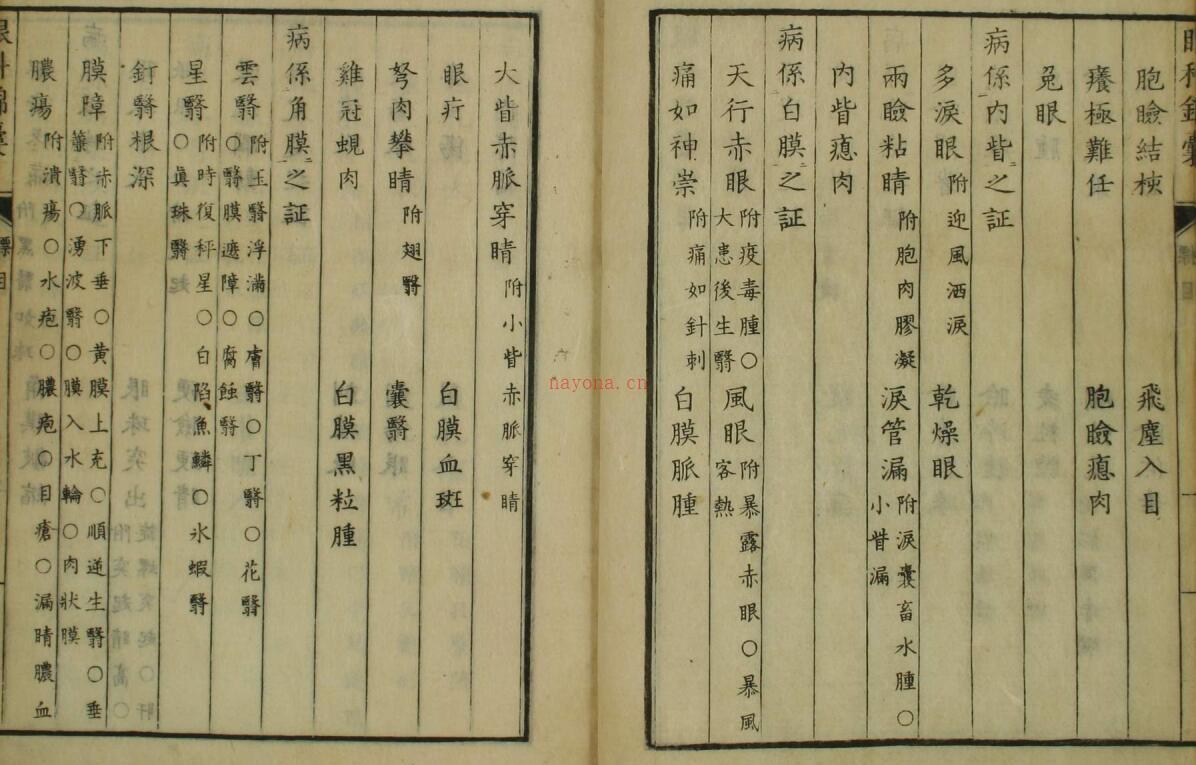 眼科錦囊
標目
胞瞼結核　飛塵入目
癢極難任　胞瞼瘜肉
兔眼
病係內眥之証
多淚眼 附迎風洒淚　乾燥眼
兩瞼粘睛 附胞肉膠凝　淚管漏 附淚囊畜水腫○小眥漏
內眥瘜肉
病係白膜之証
天行赤眼 附疫毒腫○大患後生翳　風眼 附暴露赤眼○暴風客熱
痛如神祟 附痛如針刺　白膜脈腫
大眥赤脈穿睛 附小眥赤脈穿睛
眼疔　白膜血斑
胬肉攀睛 附翅翳　囊翳
雞冠蜆肉　白膜黑粒腫
病係角膜之証
雲翳 附玉翳浮滿○膚翳○丁翳○花翳○翳膜遮障○腐蝕翳
星翳 附時復秤星○白陷魚鱗○氷蝦翳○眞珠翳
釘翳根深
膜障 附赤脈下垂○黃膜上充○順逆生翳○垂簾翳○湧波翳○膜入水輪○肉狀膜
膿瘍 附潰瘍○水疱○膿疱○目瘡○漏睛膿血
眼科錦囊
標目
nayona.cn